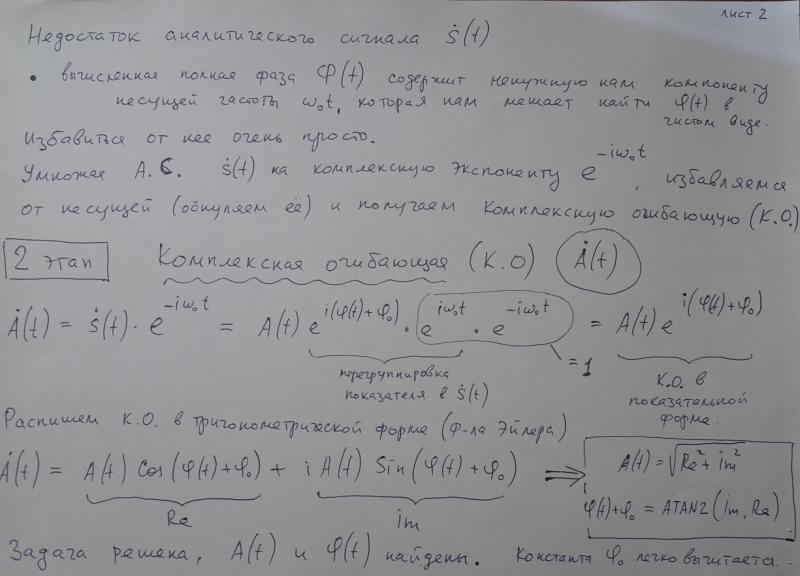 лист 2
Недостаток аналитического сигнала ṡ(t)
• вычисленная полная фаза Φ(t) содержит ненужную нам компоненту
несущей частоты ω₀t, которая нам мешает найти φ(t) в
чистом виде.
Избавиться от нее очень просто.
Умножая А.С. ṡ(t) на комплексную экспоненту e^{-iω₀t}, избавляемся
от несущей (обнуляем её) и получаем комплексную огибающую (К.О.)
2 этап Комплексная огибающая (К.О) Ȧ(t)
Ȧ(t) = ṡ(t) · e^{-iω₀t} = A(t) e^{i(φ(t)+φ₀)} · e^{iω₀t} · e^{-iω₀t} = A(t) e^{i(φ(t)+φ₀)}
= 1
перегруппировка
показателя в ṡ(t)
К.О. в
показательной
форме.
Распишем К.О. в тригонометрической форме (Ф-ла Эйлера)
Ȧ(t) = A(t) Cos(φ(t)+φ₀) + i A(t) Sin(φ(t)+φ₀) ⇒ A(t) = √(Re² + im²)
Re im
φ(t)+φ₀ = ATAN2(im, Re)
Задача решена, A(t) и φ(t) найдены. Константа φ₀ легко вычитается.